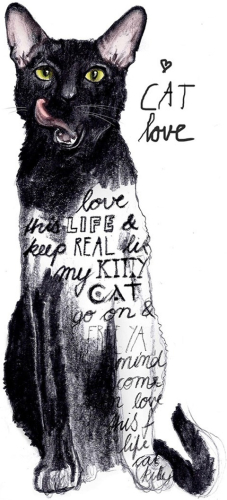 CAT
love
love
this LIFE &
keep REAL
my KITTY
CAT
go on &
FREE YA
mind
come
in love
this
life
cat
kitty